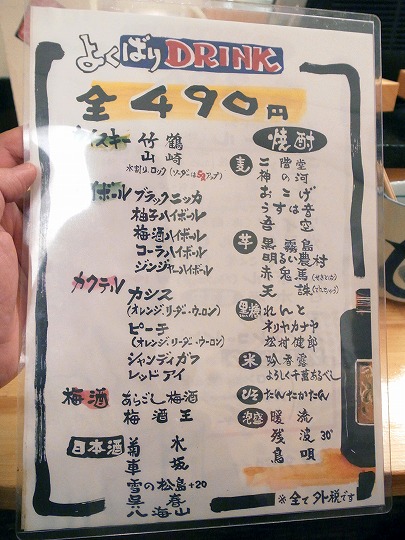 よくばりDRINK
全490円
ウイスキー 竹鶴
山崎
水割り.ロック (ソーダは52アップ)
ハイボール ブラックニッカ
柚子ハイボール
梅酒ハイボール
コーラハイボール
ジンジャーハイボール
カクテル
カシス
(オレンジ.ソーダ.ウーロン)
ピーチ
(オレンジ.ソーダ.ウーロン)
シャンディガフ
レッドアイ
梅酒 あらごし梅酒
梅酒王
日本酒 菊水
車坂
雪の松島+20
呉春
八海山
焼酎
麦 二階堂
神の河
おこげ
うすは音
吾空
芋 黒霧島
明るい農村
赤兎馬(せきとば)
天誅(てんちゅう)
黒糖 れんと
ネリヤカナヤ
松村健郎
米 吟香露
よろしく千萬あるべし
しそ たんたかたん
泡盛 暖流
残波30°
島唄
※全て外税です